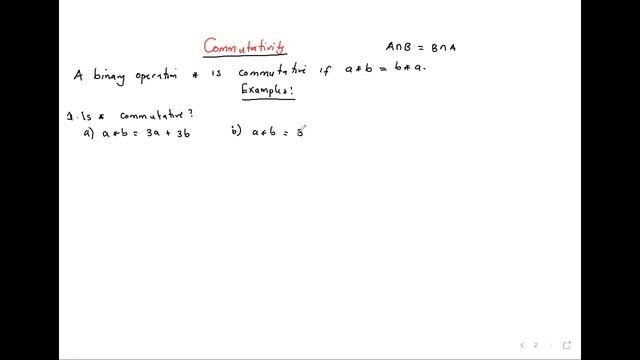 Commutativity
A∩B = B∩A
A binary operation * is commutative if a*b = b*a.
Examples:
1. Is * commutative?
a) a*b = 3a + 3b b) a*b = 3
2